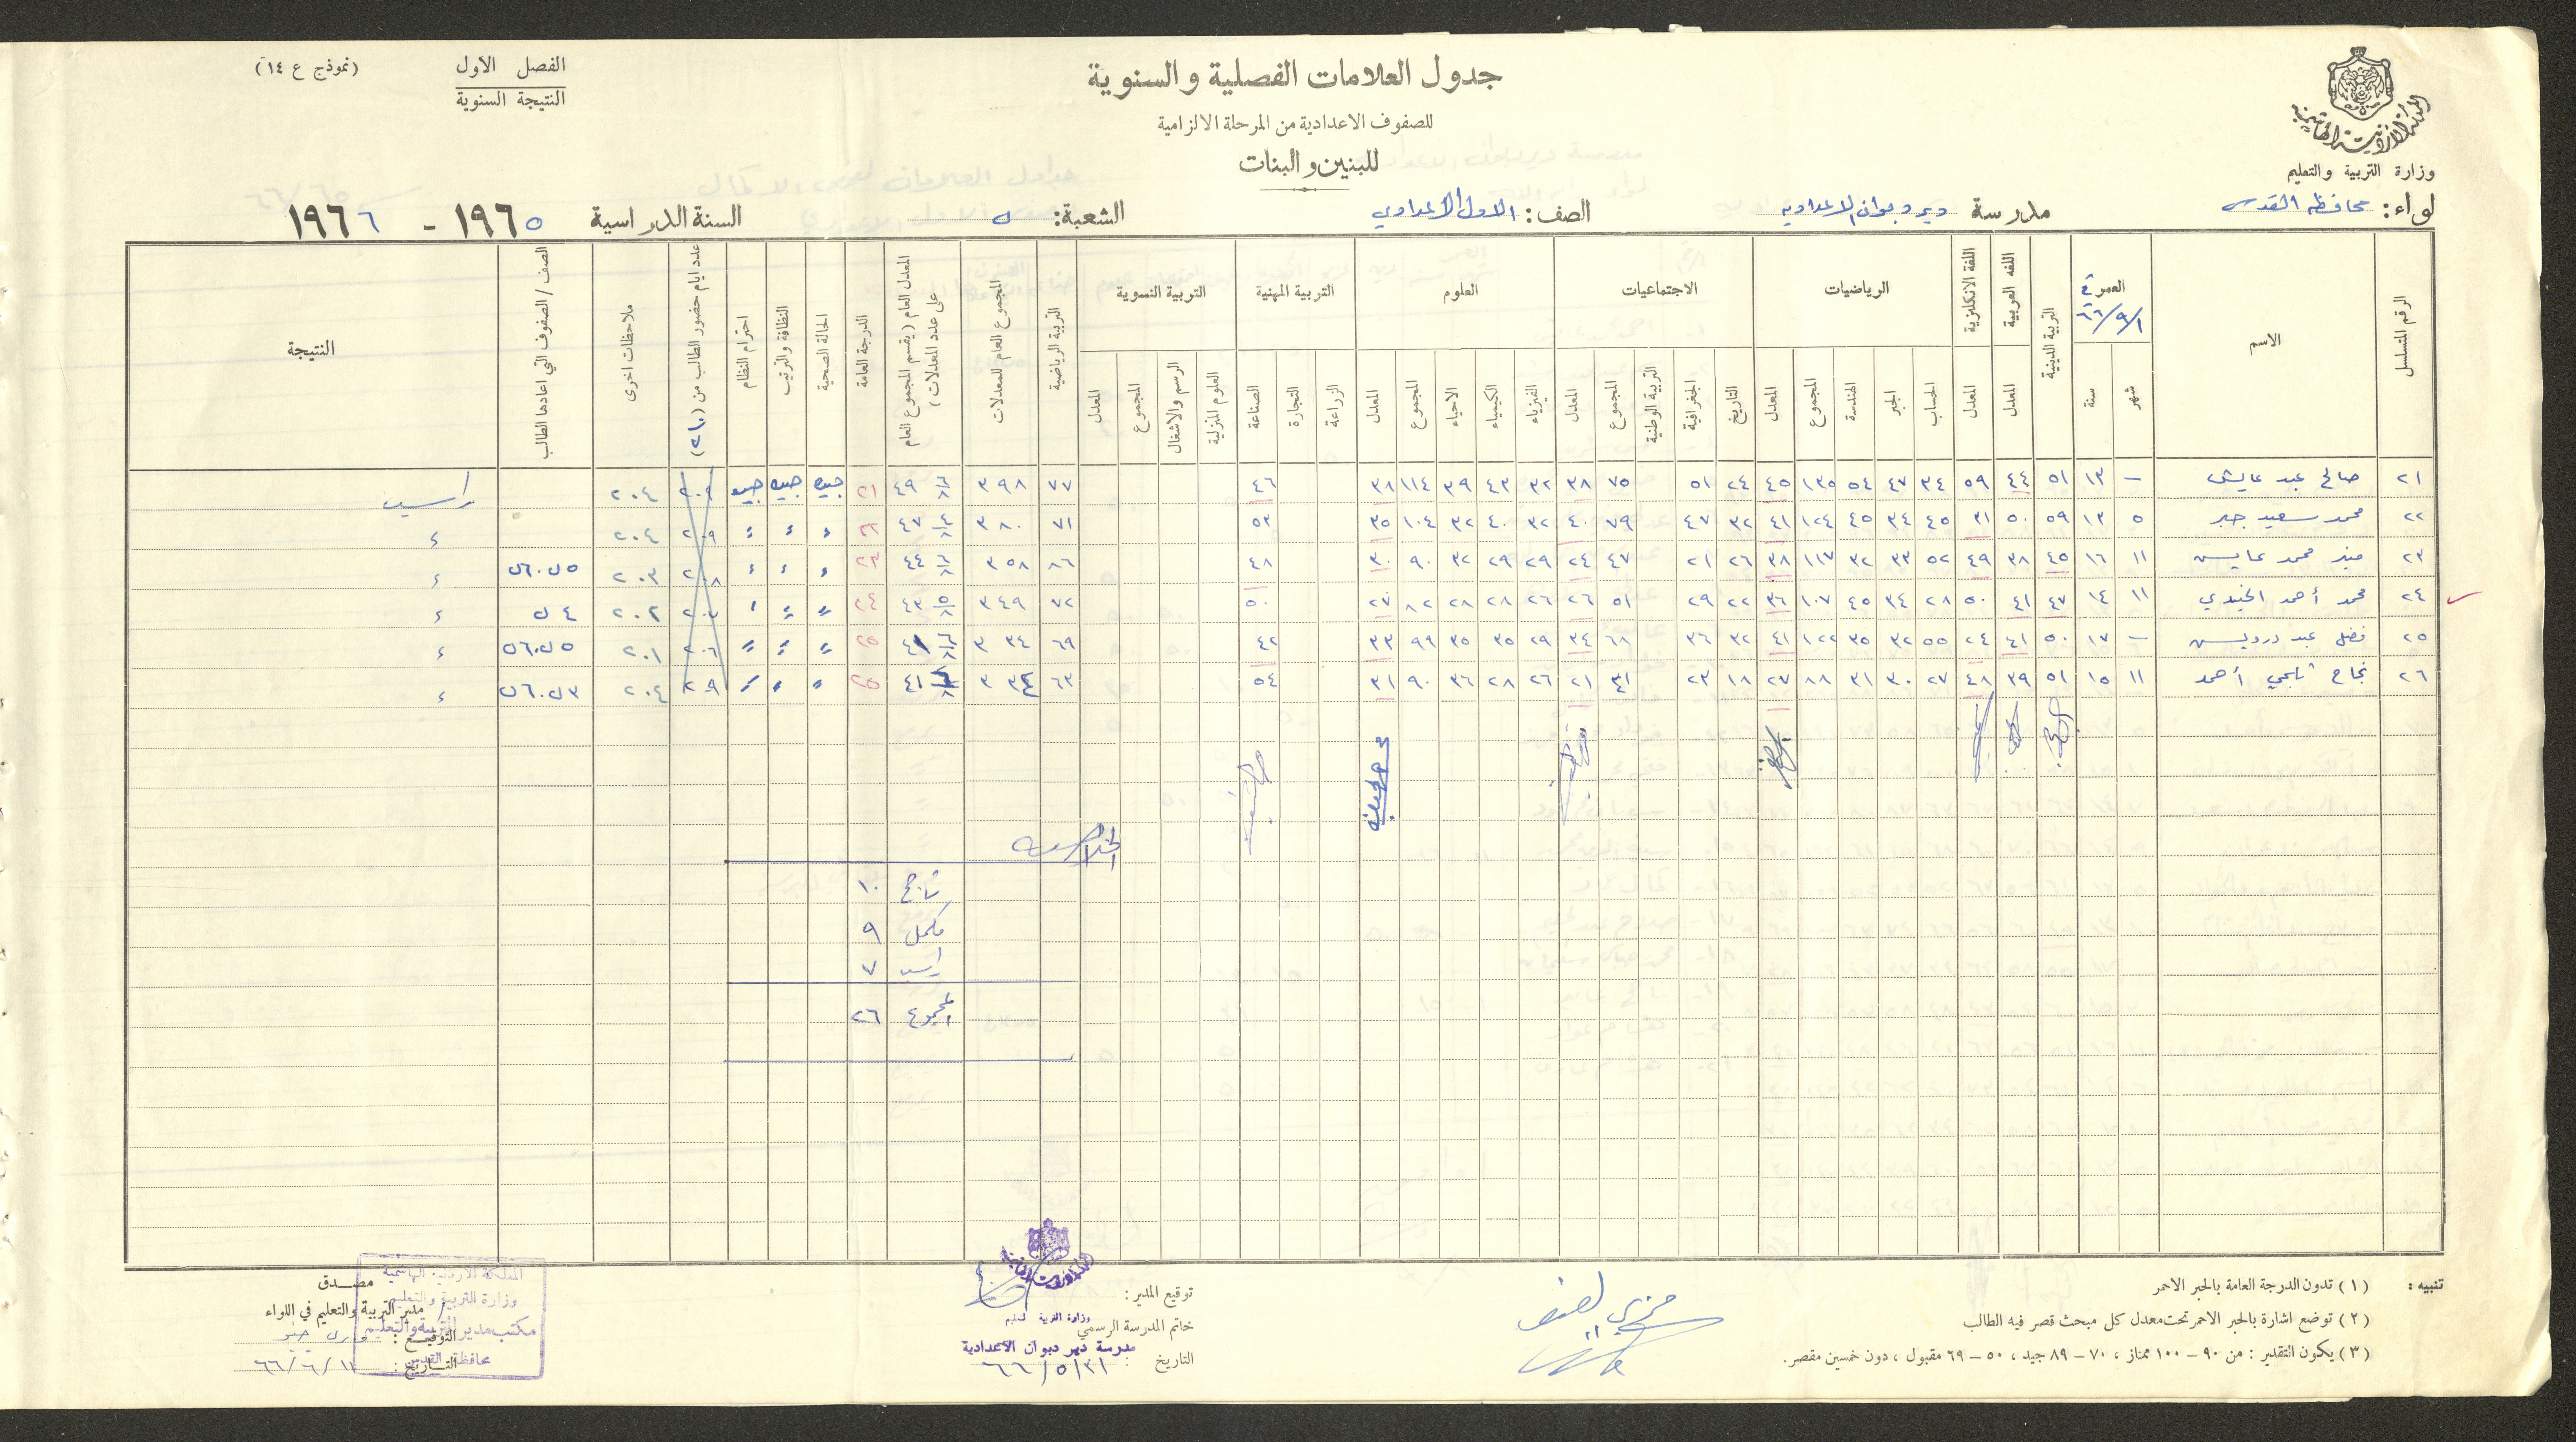 المملكة الاردنية الهاشمية
وزارة التربية والتعليم
جدول العلامات الفصلية والسنوية
للصفوف الاعدادية من المرحلة الالزامية
للبنين والبنات
الفصل الاول
النتيجة السنوية
(نموذج ع ١٤)
لواء: محافظة القدس مدرسة دير دبوان الاعدادية الصف: الاول الاعدادي الشعبة: ں السنة الدراسية ١٩٦٥ - ١٩٦٦
الرقم المتسلسل الاسم العمر في ٦٦/٩/١ شهر سنة التربية الدينية اللغه العربية المعدل اللغة الانكليزية المعدل الرياضيات الحساب الجبر الهندسة المجموع المعدل الاجتماعيات التاريخ الجغرافية التربية الوطنية المجموع المعدل العلوم الفيزياء الكيمياء الاحياء المجموع المعدل التربية المهنية الزراعة التجارة الصناعة التربية النسوية العلوم المنزلية الرسم والاشغال المجموع المعدل التربية الرياضية المجموع العام للمعدلات المعدل العام (يقسم المجموع العام على عدد المعدلات) الدرجة العامة الحالة الصحية النظافة والترتيب احترام النظام عدد ايام حضور الطالب من (٢١٠) ملاحظات اخرى الصف / الصفوف التي اعادها الطالب النتيجة
٢١ صالح عبد عايش – ١٣ ٥١ ٤٤ ٥٩ ٣٤ ٤٧ ٥٤ ١٣٥ ٤٥ ٢٤ ٥١ ٧٥ ٣٨ ٣٢ ٤٣ ٣٩ ١١٤ ٣٨ ٤٦ ٧٧ ٣٩٨ ٤٩ ٦/٨ ٢١ جيده جيده جيد ٢٠٩ ٢٠٤ راسب
٢٢ محمد سعيد جبر ٥ ١٣ ٥٩ ٥٠ ٣١ ٤٥ ٣٤ ٤٥ ١٢٤ ٤١ ٣٢ ٤٧ ٧٩ ٤٠ ٣٢ ٤٠ ٣٢ ١٠٤ ٣٥ ٥٣ ٧١ ٣٨٠ ٤٧ ٤/٨ ٢٢ " " " ٢٠٩ ٢٠٤ "
٢٣ منير محمد عايش ١١ ١٦ ٤٥ ٣٨ ٤٩ ٥٢ ٣٣ ٣٢ ١١٧ ٣٨ ٢٦ ٢١ ٤٧ ٢٤ ٢٩ ٢٩ ٣٢ ٩٠ ٣٠ ٤٨ ٨٦ ٣٥٨ ٤٤ ٦/٨ ٢٣ " " " ٢٠٨ ٢٠٣ ٥ں٠٦ں "
٢٤ محمد أحمد الجنيدي ١١ ١٤ ٤٧ ٤١ ٥٠ ٢٨ ٣٤ ٤٥ ١٠٧ ٣٦ ٢٢ ٢٩ ٥١ ٢٦ ٢٦ ٢٨ ٢٨ ٨٢ ٢٧ ٥٠ ٧٢ ٣٤٩ ٤٣ ٥/٨ ٢٤ " " " ٢٠٢ ٤ں "
٢٥ فضل عبد درويش – ١٧ ٥٠ ٤١ ٢٤ ٥٥ ٣٢ ٣٥ ١٢٢ ٤١ ٣٢ ٣٦ ٦٨ ٣٤ ٢٩ ٣٥ ٣٥ ٩٩ ٣٣ ٤٢ ٦٩ ٣٣٤ ٤١ ٦/٨ ٢٥ " " " ٢٠٦ ٢٠١ ٥ں٠٦ں "
٢٦ نجاح ناجي أحمد ١١ ١٥ ٥١ ٣٩ ٤٨ ٢٧ ٣٠ ٣١ ٨٨ ٢٧ ١٨ ٢٣ ٤١ ٢١ ٢٦ ٢٨ ٣٦ ٩٠ ٣١ ٥٤ ٦٣ ٤١ ٢٥ " " " ٢٠٩ ٢٠٤ ٣ں٠٦ں "
الخلاصه
ناجح ١٠
مكمل ٩
راسب ٧
المجموع ٢٦
تنبيه: (١) تدون الدرجة العامة بالحبر الاحمر
(٢) توضع اشارة بالحبر الاحمر تحت معدل كل مبحث قصر فيه الطالب
(٣) يكون التقدير: من ٩٠ – ١٠٠ ممتاز، ٧٠ – ٨٩ جيد، ٥٠ – ٦٩ مقبول، دون خمسين مقصر.
توقيع المدير:
المملكة الاردنية الهاشمية
وزارة التربية والتعليم
خاتم المدرسة الرسمي
مدرسة دير دبوان الاعدادية
التاريخ: ٦٦/٥/٣١
مصدق
مدير التربية والتعليم في اللواء
التوقيع:
التاريخ: ٦٦/٦/١١
المملكة الاردنية الهاشمية
وزارة التربية والتعليم
مكتب مدير التربية والتعليم
محافظة القدس